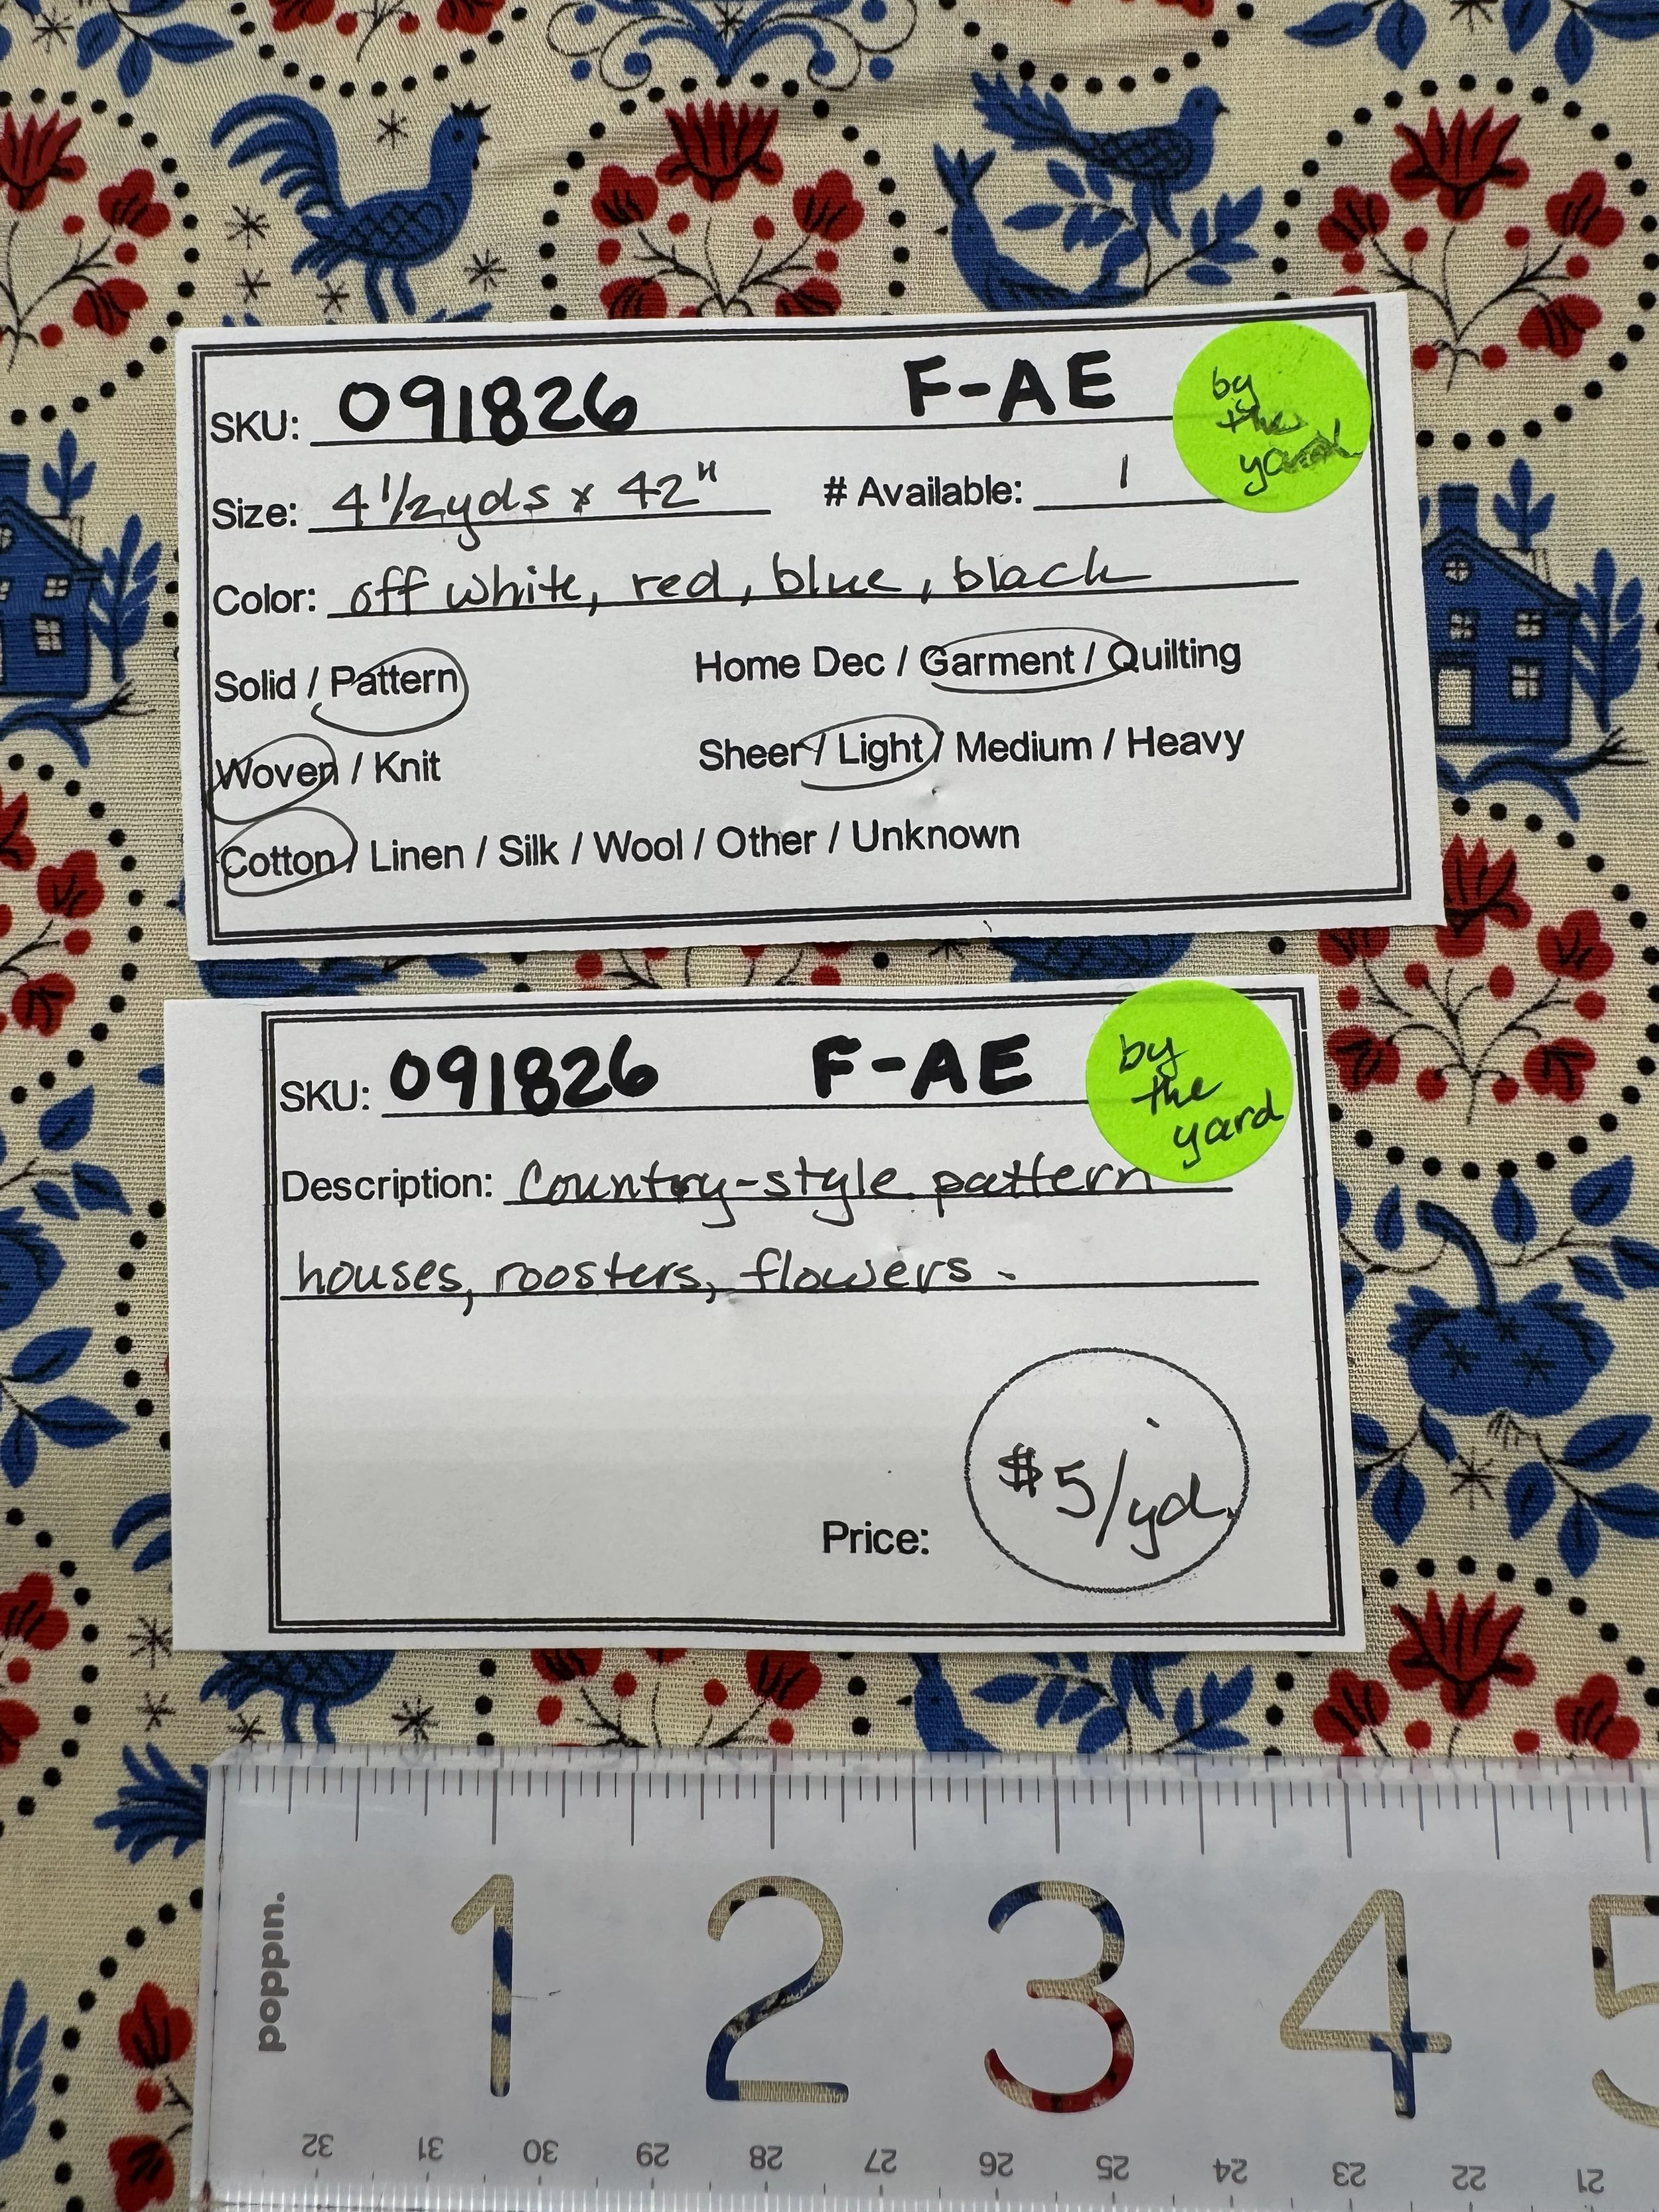 SKU: 091826 F-AE
by
the
yard
Size: 4 1/2 yds x 42" # Available: 1
Color: off white, red, blue, black
Solid / Pattern Home Dec / Garment / Quilting
Woven / Knit Sheer / Light / Medium / Heavy
Cotton / Linen / Silk / Wool / Other / Unknown
SKU: 091826 F-AE
by
the
yard
Description: Country-style pattern
houses, roosters, flowers.
Price: $5/yd
poppin.
1 2 3 4 5
32 31 30 29 28 27 26 25 24 23 22 21